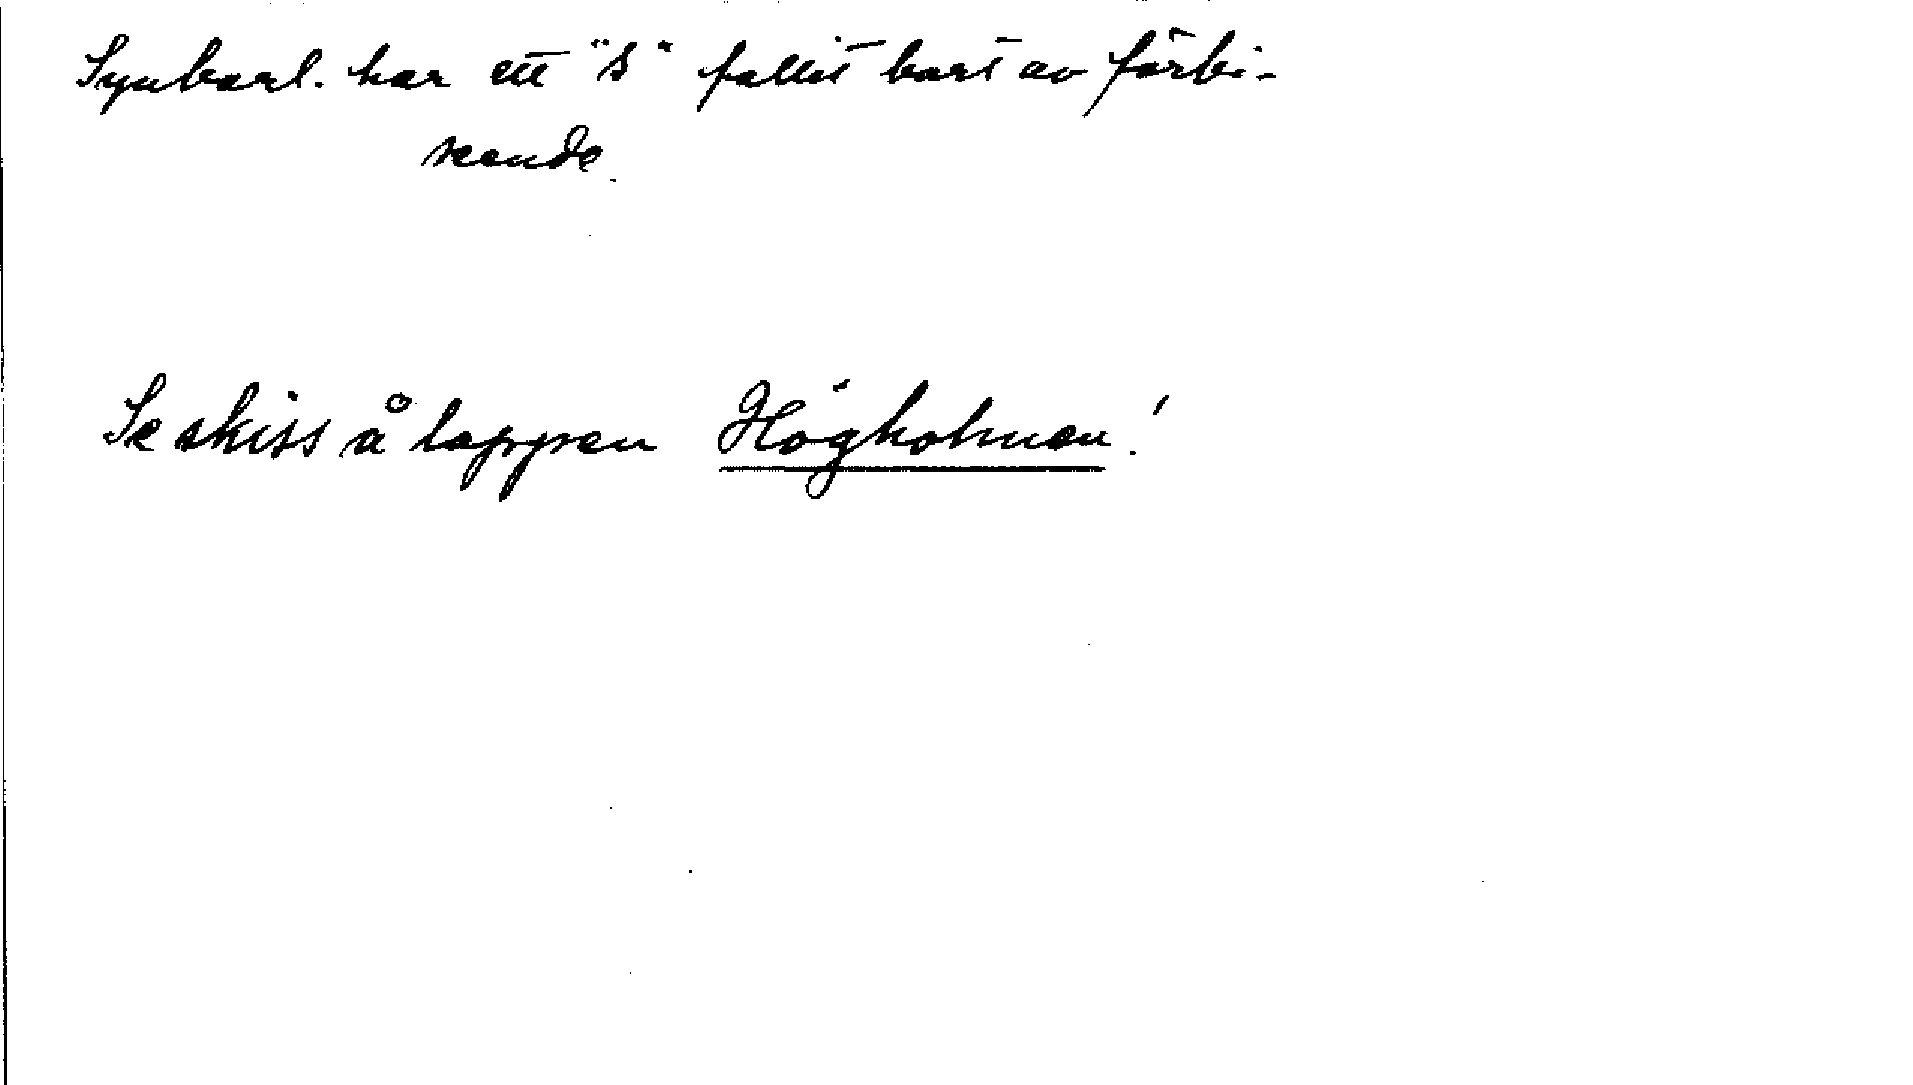 Synbarl. har ett "s" fallit bort av förbi-
seende.
Se skiss å lappen Högholmen!